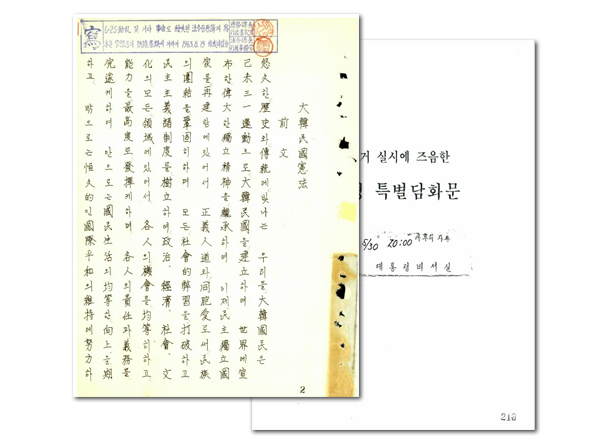 寫
大韓民國憲法
前文
悠久한歷史와傳統에빛나는 우리들大韓國民은
己未三一運動으로大韓民國을建立하여 世界에宣
布한偉大한獨立精神을繼承하여 이제民主獨立國
家를再建함에있어서 正義人道와同胞愛로써民族
의團結을鞏固히하며 모든社會的弊習을打破하고
民主主義諸制度를樹立하여政治, 經濟, 社會, 文
化의모든領域에있어서 各人의機會를均等히하고
能力을最高度로發揮케하며 各人의責任과義務를
完遂케하며 안으로는國民生活의均等한向上을期
하고 밖으로는恒久的인國際平和의維持에努力하
2
거 실시에 즈음한
특별담화문
5/30 20:00
대통령비서실